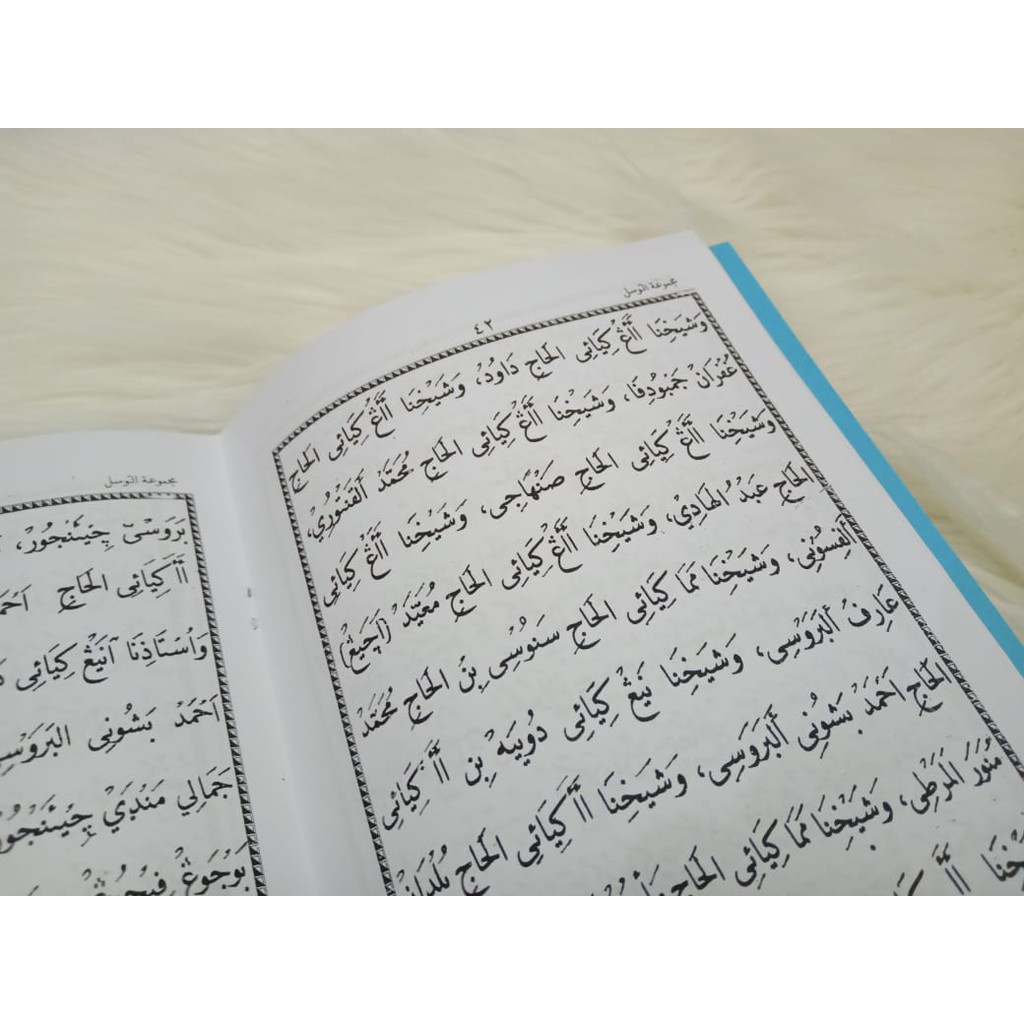 مجموعة التوسل
٤٢
وَشَيْخِنَا أَاڠْ كِيَائِي الْحَاج دَاوُدْ، وَشَيْخِنَا أَاڠْ كِيَائِي الْحَاج
غُفْرَانْ جَمْبُودِفَا، وَشَيْخِنَا أَاڠْ كِيَائِي الْحَاج مُحَمَّدْ اَلْفَنْتُورِيْ،
وَشَيْخِنَا أَاڠْ كِيَائِي الْحَاج صَنْهَاجِى، وَشَيْخِنَا أَاڠْ كِيَائِي
الْحَاج عَبْدُ الْهَادِيْ، وَشَيْخِنَا أَاڠْ كِيَائِي الْحَاج مُعَيَّدْ (اَچَيڠْ)
اَلْفِسُونِى، وَشَيْخِنَا مَمَا كِيَائِي الْحَاج سَنُوْسِى بِنْ الْحَاج مُحَمَّدْ
عَارِفْ اَلْبَرَوْسِى، وَشَيْخِنَا يَيڠْ كِيَائِي دُوْيِيَهْ بِنْ أَأْ كِيَائِي
الْحَاج اَحْمَدْ بَشُوْنِى اَلْبَرَوْسِى، وَشَيْخِنَا أَأْ كِيَائِي الْحَاج بُلْدَانْ
مُنَوَّرْ الْمَرْطِى، وَشَيْخِنَا مَمَا كِيَائِي الْحَاج
مجموعة التوسل
بَرَوْسْ چِيَنْجُورْ،
أَأْ كِيَائِي الْحَاج اَحْمَ
وَاُسْتَاذِنَا آنَيڠْ كِيَائِي
اَحْمَدْ بَشُونِى الْبَرَوْسِ
جَمَالِي مَنْدَيْ چِيَنْجُوْر
بَوْجَوڠْ